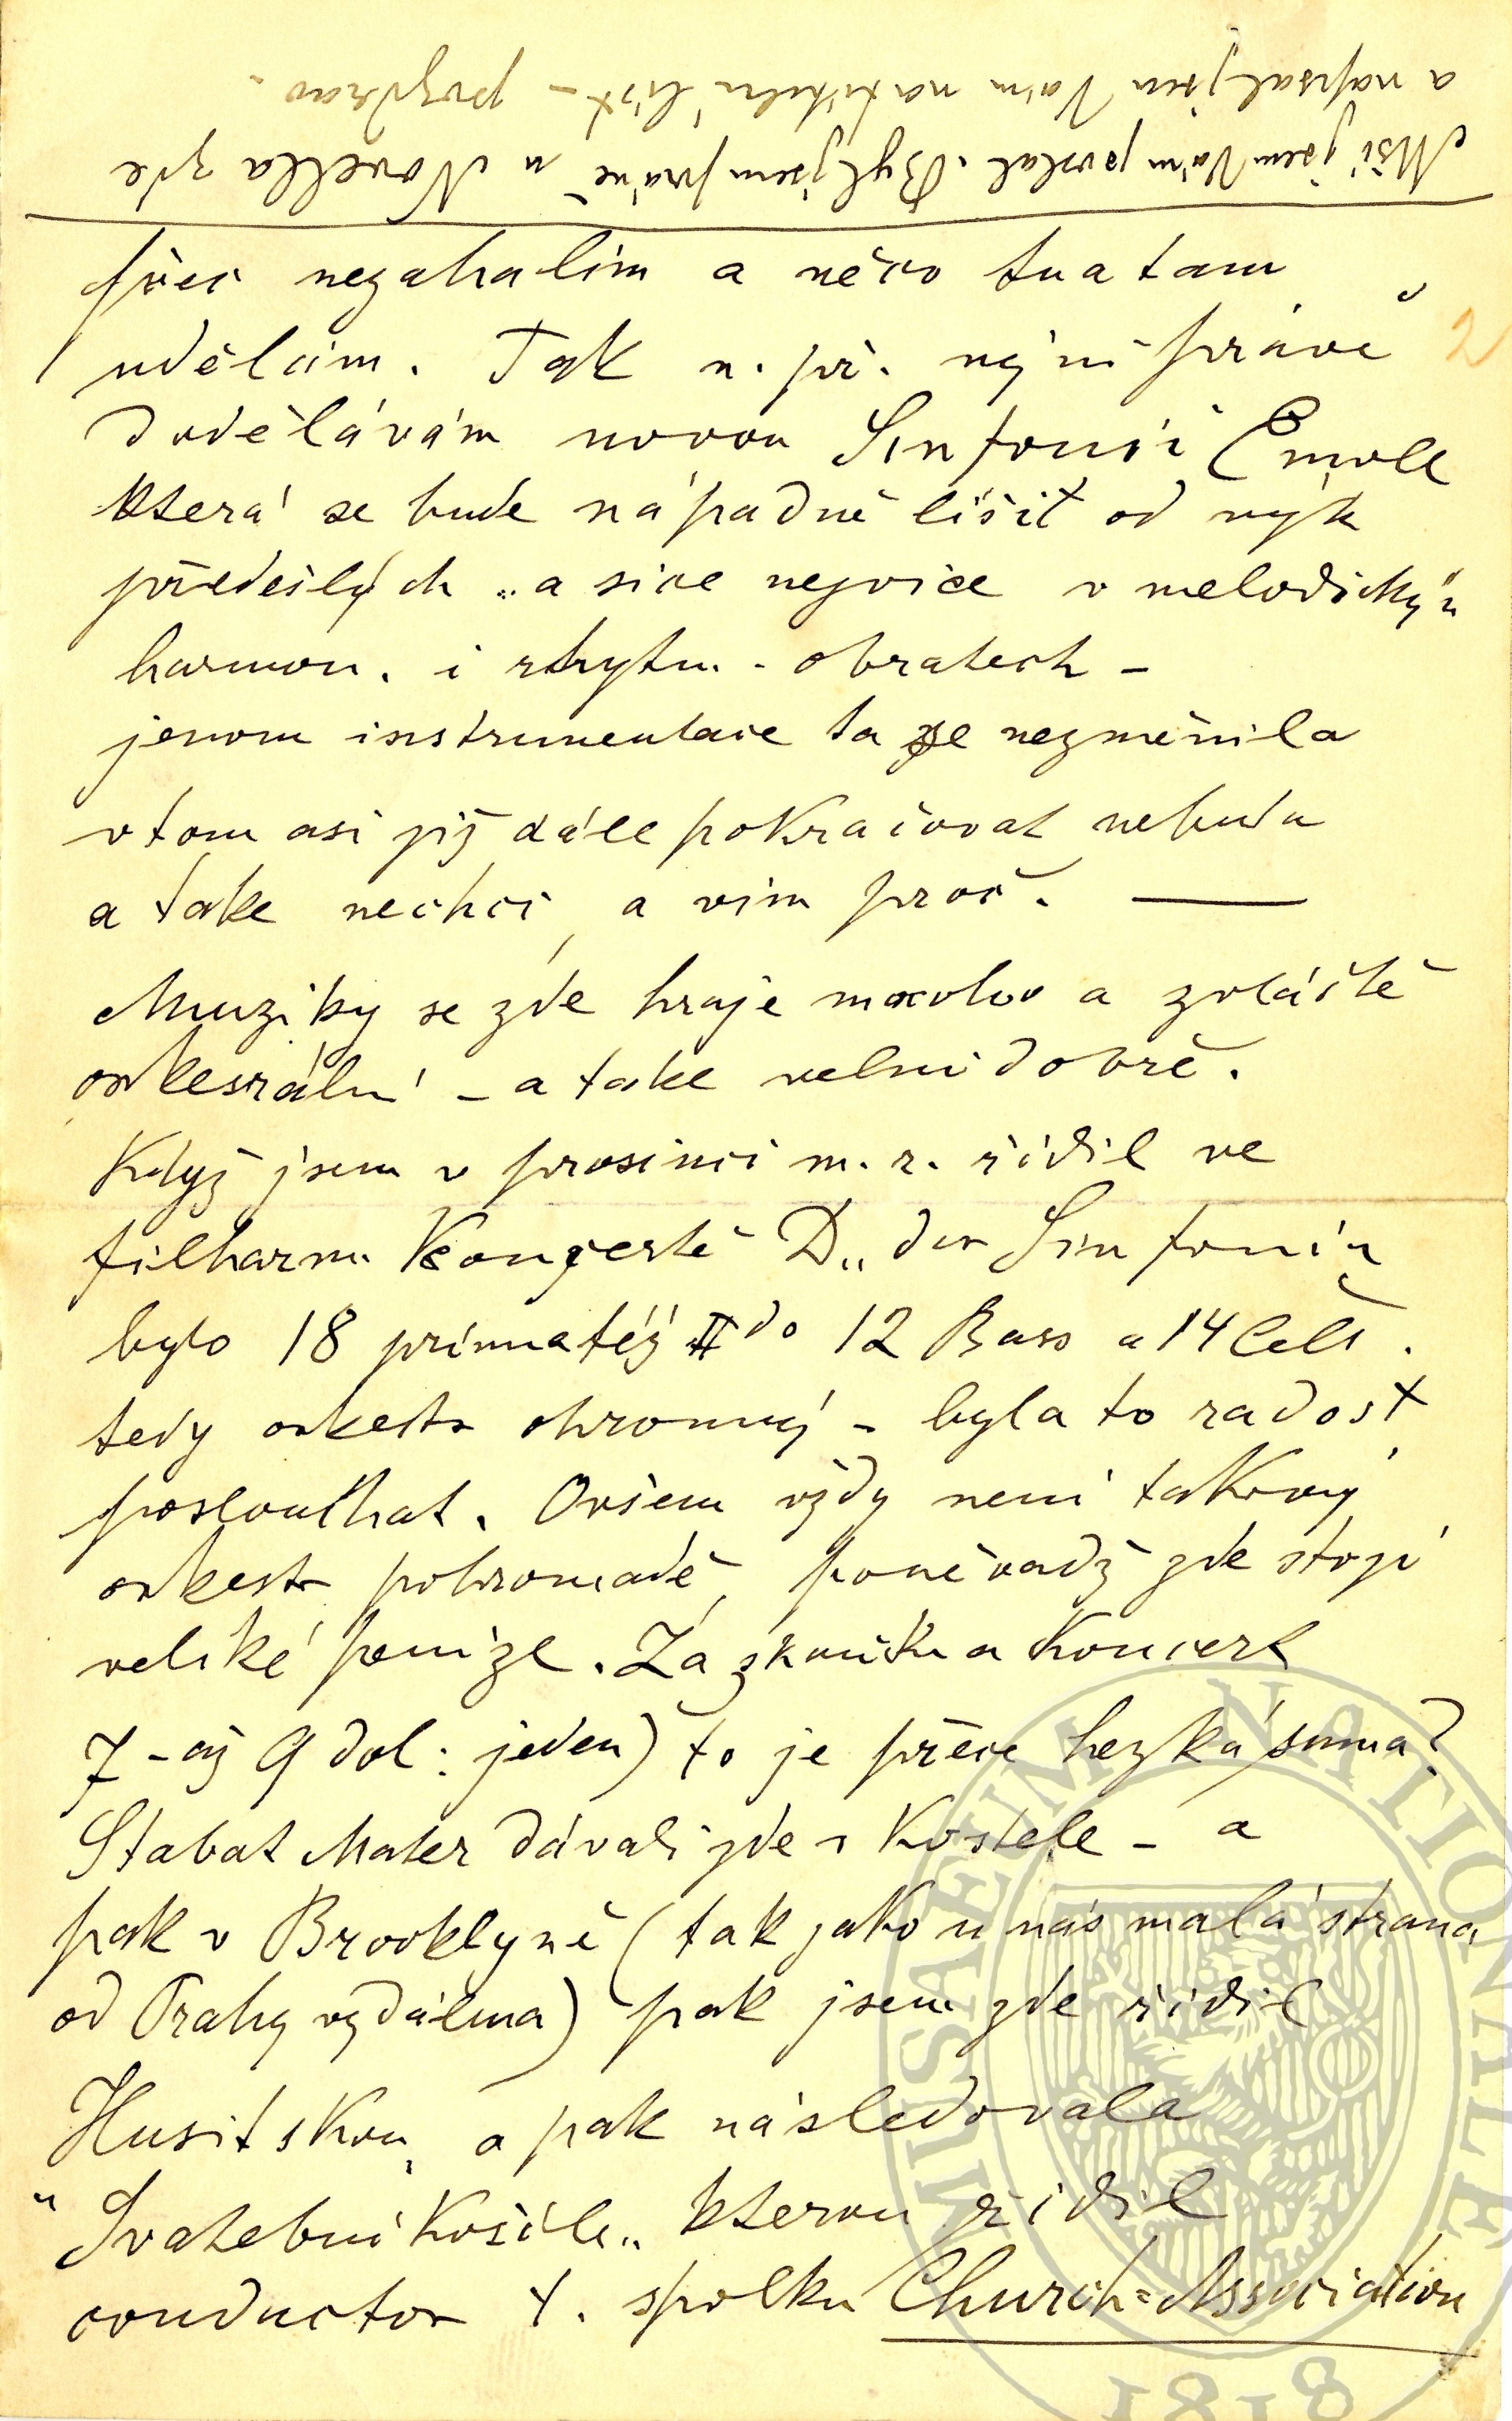 Mši jsem Vám poslal. Byl jsem právě u Novella zde
a napsal jsem Vám na titulní list – pozdrav.
přec nezahalím a něco tu a tam
udělám. Tak n. př. nyní právě
2
dodělávám novou Sinfonii E moll
která se bude nápadně lišit od mých
předešlých „ a sice nejvíce v melodických
harmon. i rhytm. obratech –
jenom instrumentace ta se nezměnila
v tom asi již dále pokračovat nebudu
a take nechci, a vím proč. —
Muziky se zde hraje mnoho a zvláště
orkesrální – a take velmi dobrě.
Když jsem v prosinci m. r. řídil ve
filharm. Koncertě D„ dur Sinfonii
bylo 18 prim a též IIdo 12 Bass a 14 Celi.
tedy orkestr ohromný – byla to radost
poslouchat. Ovšem vždy není takový
orkestr pohromadě, poněvadž zde stojí
veliké peníze. Za zkoušku a Koncert
7 – až 9 dol: jeden) to je přece hezká suma?
Stabat Mater dávali zde v Kostele – a
pak v Brooklyně (tak jako u nás malá strana
od Prahy vzdálena) pak jsem zde řídil
Husitskou, a pak následovala
„Svatební Košile„ kterou řídil
conductor t. spolku Church=Association
MUSAEUM NATIONALE
1818